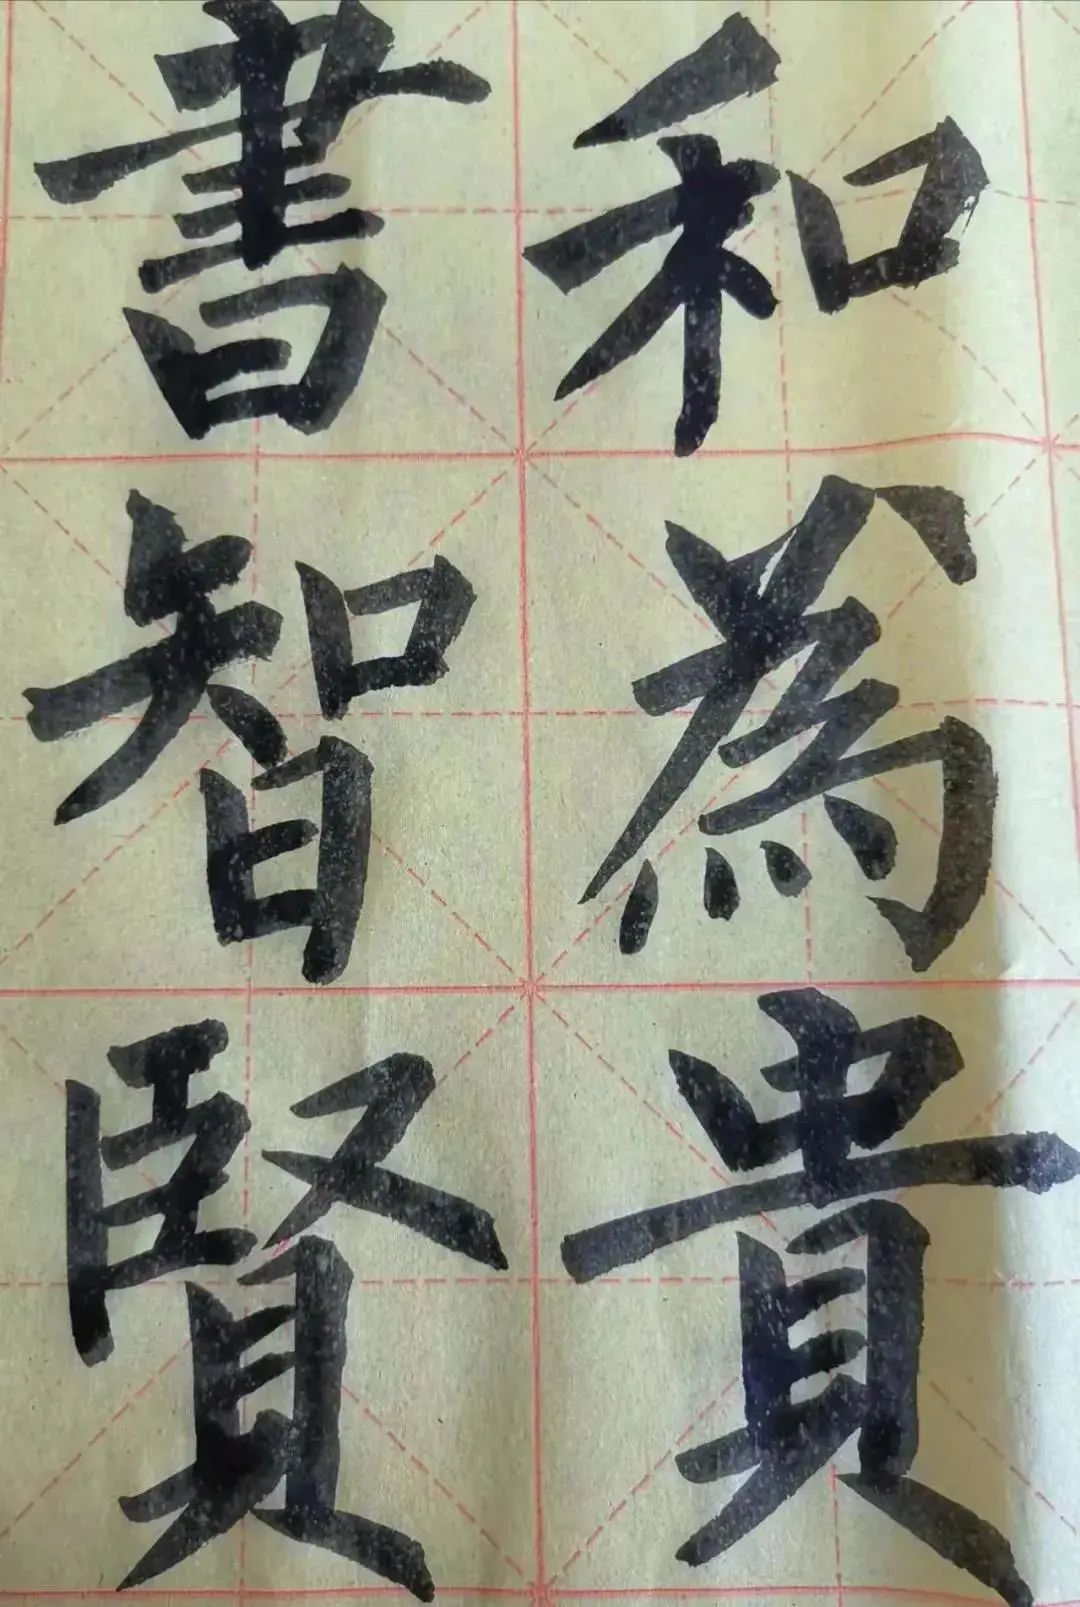 和為貴
書智賢